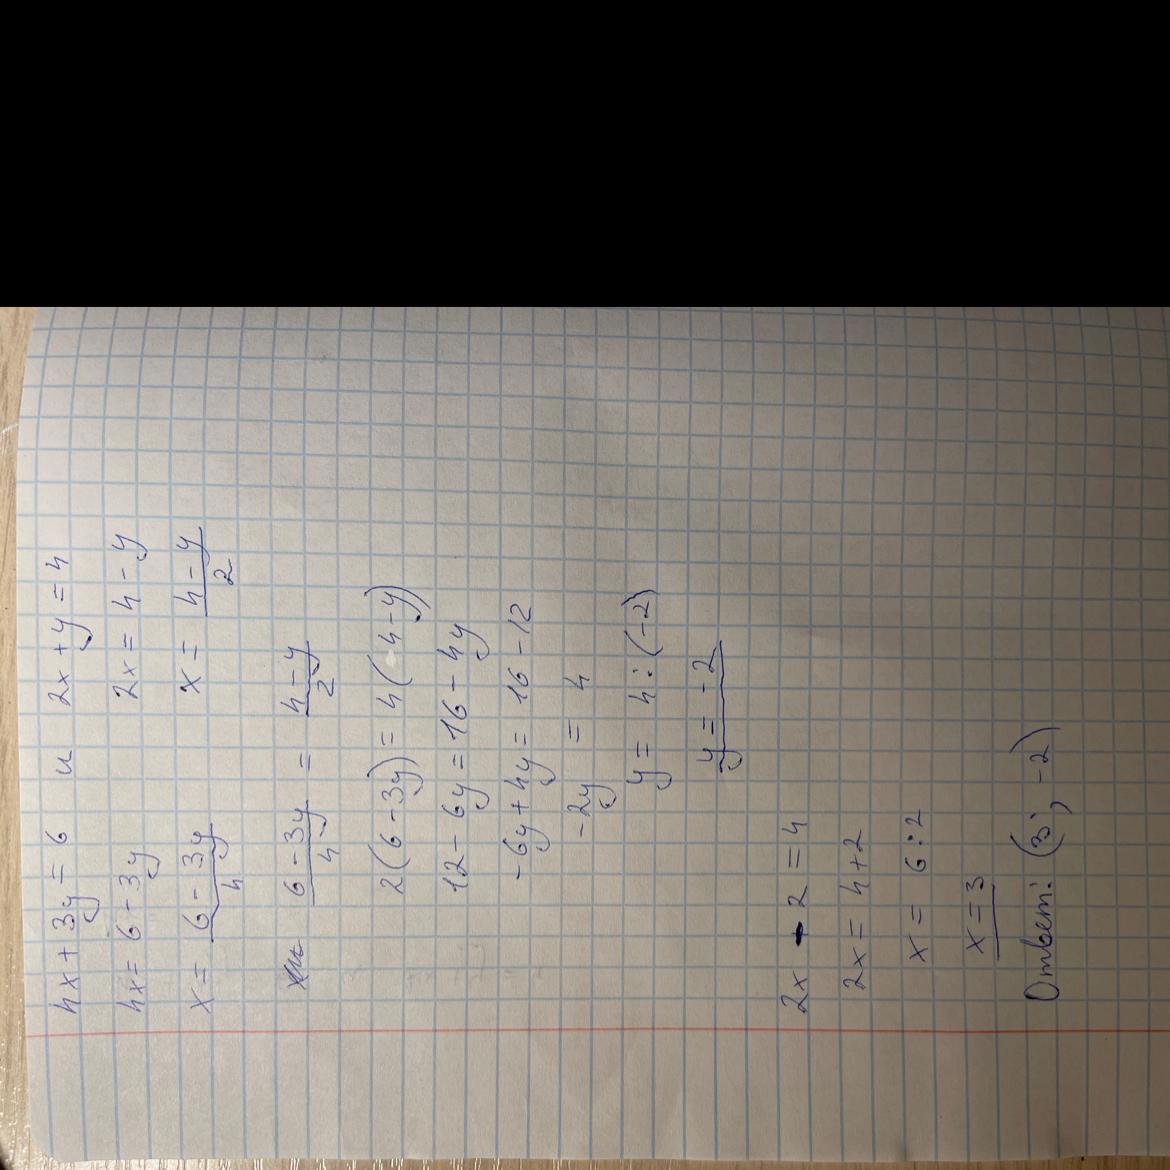 4x + 3y = 6 и 2x + y = 4
4x = 6 - 3y 2x = 4 - y
x = \frac{6 - 3y}{4} x = \frac{4 - y}{2}
\frac{6 - 3y}{4} = \frac{4 - y}{2}
2(6 - 3y) = 4(4 - y)
12 - 6y = 16 - 4y
-6y + 4y = 16 - 12
-2y = 4
y = 4 : (-2)
y = -2
2x - 2 = 4
2x = 4 + 2
x = 6 : 2
x = 3
Ответ: (3; -2)